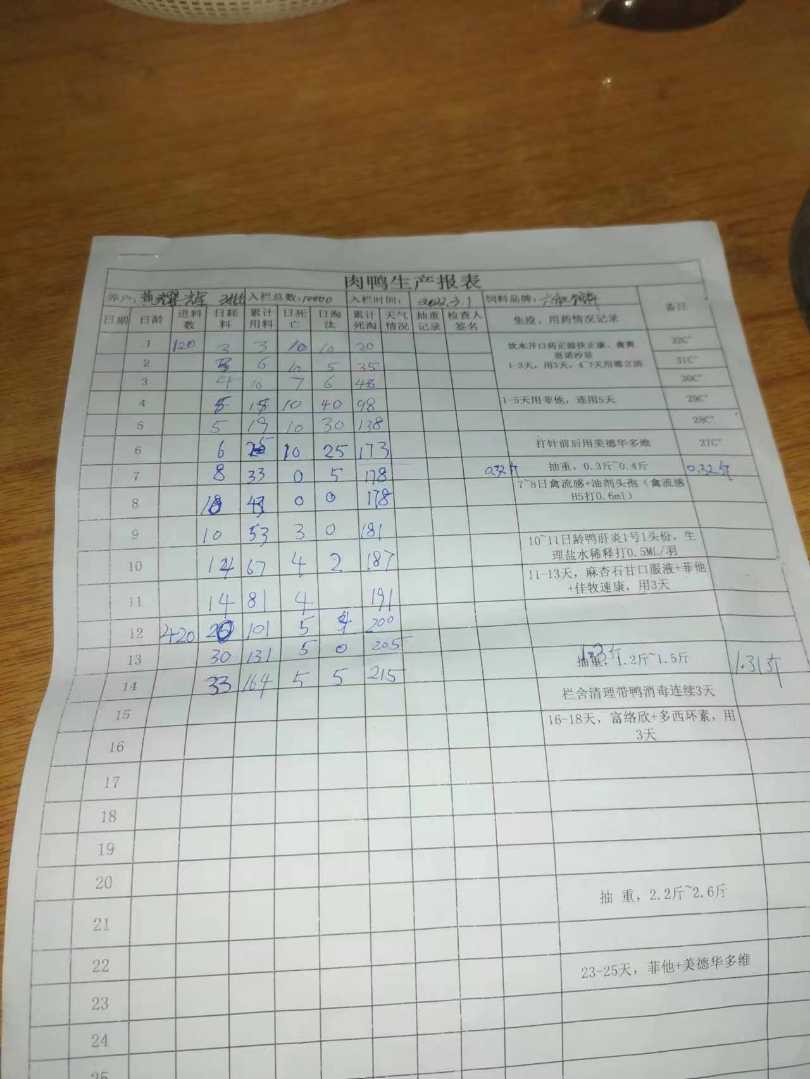 肉鸭生产报表
养户: 黄耀辉 入栏总数:10000 入栏时间: 2022.3.1 饲料品牌:
日期 日龄 进料数 日耗料 累计用料 日死亡 日淘汰 累计死淘 天气情况 抽重记录 检查人签名 免疫、用药情况记录 备注
1 120 3 3 10 10 20 32C°
1-3天，用3天，
2 3 6 10 5 35 31C°
3 4 10 7 6 48 30C°
4 5 15 10 40 98 1-5天用菲他，连用5天 29C°
5 5 19 10 30 138 28C°
6 6 25 10 25 173 打针前后用美德华多维 27C°
7 8 33 0 5 178 0.32斤 抽重，0.3斤~0.4斤 0.32斤
8 10 43 0 0 178 7~8日禽流感+油剂头孢（禽流感
H5打0.6ml）
9 10 53 3 0 181
10 14 67 4 2 187 10~11日龄鸭肝炎1号1头份，生
理盐水稀释打0.5ML/羽
11 14 81 4 191 11-13天，麻杏石甘口服液+菲他
+佳牧速康，用3天
12 420 20 101 5 4 200
13 30 131 5 0 205 抽重，1.2斤~1.5斤 1.31斤
14 33 164 5 5 215 栏舍清理带鸭消毒连续3天
15 16-18天，富络欣+多西环素，用
3天
16
17
18
19
20
21 抽 重，2.2斤~2.6斤
22
23 23-25天，菲他+美德华多维
24
25